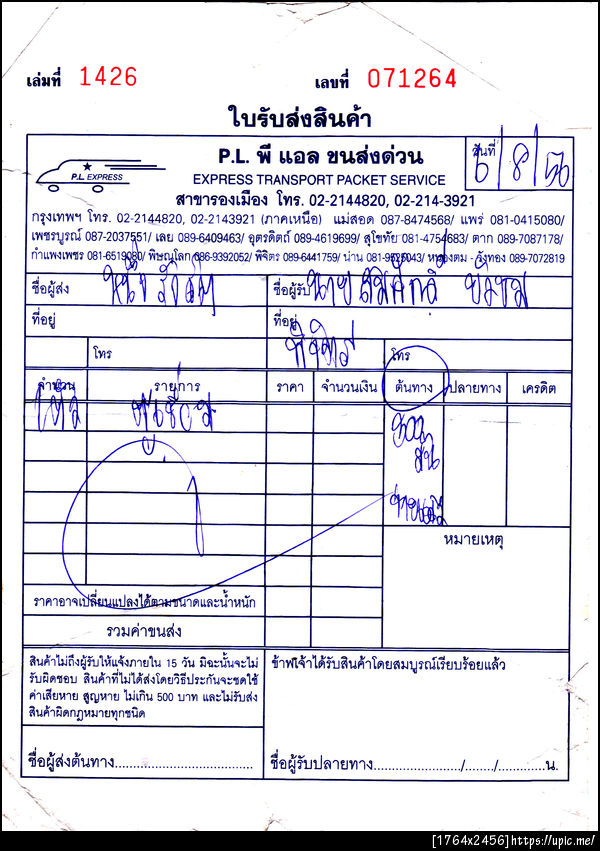 เล่มที่ 1426 เลขที่ 071264
ใบรับส่งสินค้า
P.L. EXPRESS
P.L. พี แอล ขนส่งด่วน
EXPRESS TRANSPORT PACKET SERVICE
วันที่ 6/8/56
สาขารองเมือง โทร. 02-2144820, 02-214-3921
กรุงเทพฯ โทร. 02-2144820, 02-2143921 (ภาคเหนือ) แม่สอด 087-8474568/ แพร่ 081-0415080/
เพชรบูรณ์ 087-2037551/ เลย 089-6409463/ อุตรดิตถ์ 089-4619699/ สุโขทัย 081-4754683/ ตาก 089-7087178/
กำแพงเพชร 081-6519080/ พิษณุโลก 086-9392052/ พิจิตร 089-6441759/ น่าน 081-9526043/ หนองตม - วังทอง 089-7072819
ชื่อผู้ส่ง ชื่อผู้รับ นาย สมศักดิ์
ที่อยู่ ที่อยู่ พิจิตร
โทร โทร
จำนวน รายการ ราคา จำนวนเงิน ต้นทาง ปลายทาง เครดิต
หมายเหตุ
ราคาอาจเปลี่ยนแปลงได้ตามขนาดและน้ำหนัก
รวมค่าขนส่ง
สินค้าไม่ถึงผู้รับให้แจ้งภายใน 15 วัน มิฉะนั้นจะไม่
รับผิดชอบ สินค้าที่ไม่ได้ส่งโดยวิธีประกันจะชดใช้
ค่าเสียหาย สูญหาย ไม่เกิน 500 บาท และไม่รับส่ง
สินค้าผิดกฎหมายทุกชนิด
ข้าพเจ้าได้รับสินค้าโดยสมบูรณ์เรียบร้อยแล้ว
ชื่อผู้ส่งต้นทาง
ชื่อผู้รับปลายทาง / / น.
[1764x2456]https://upic.me/